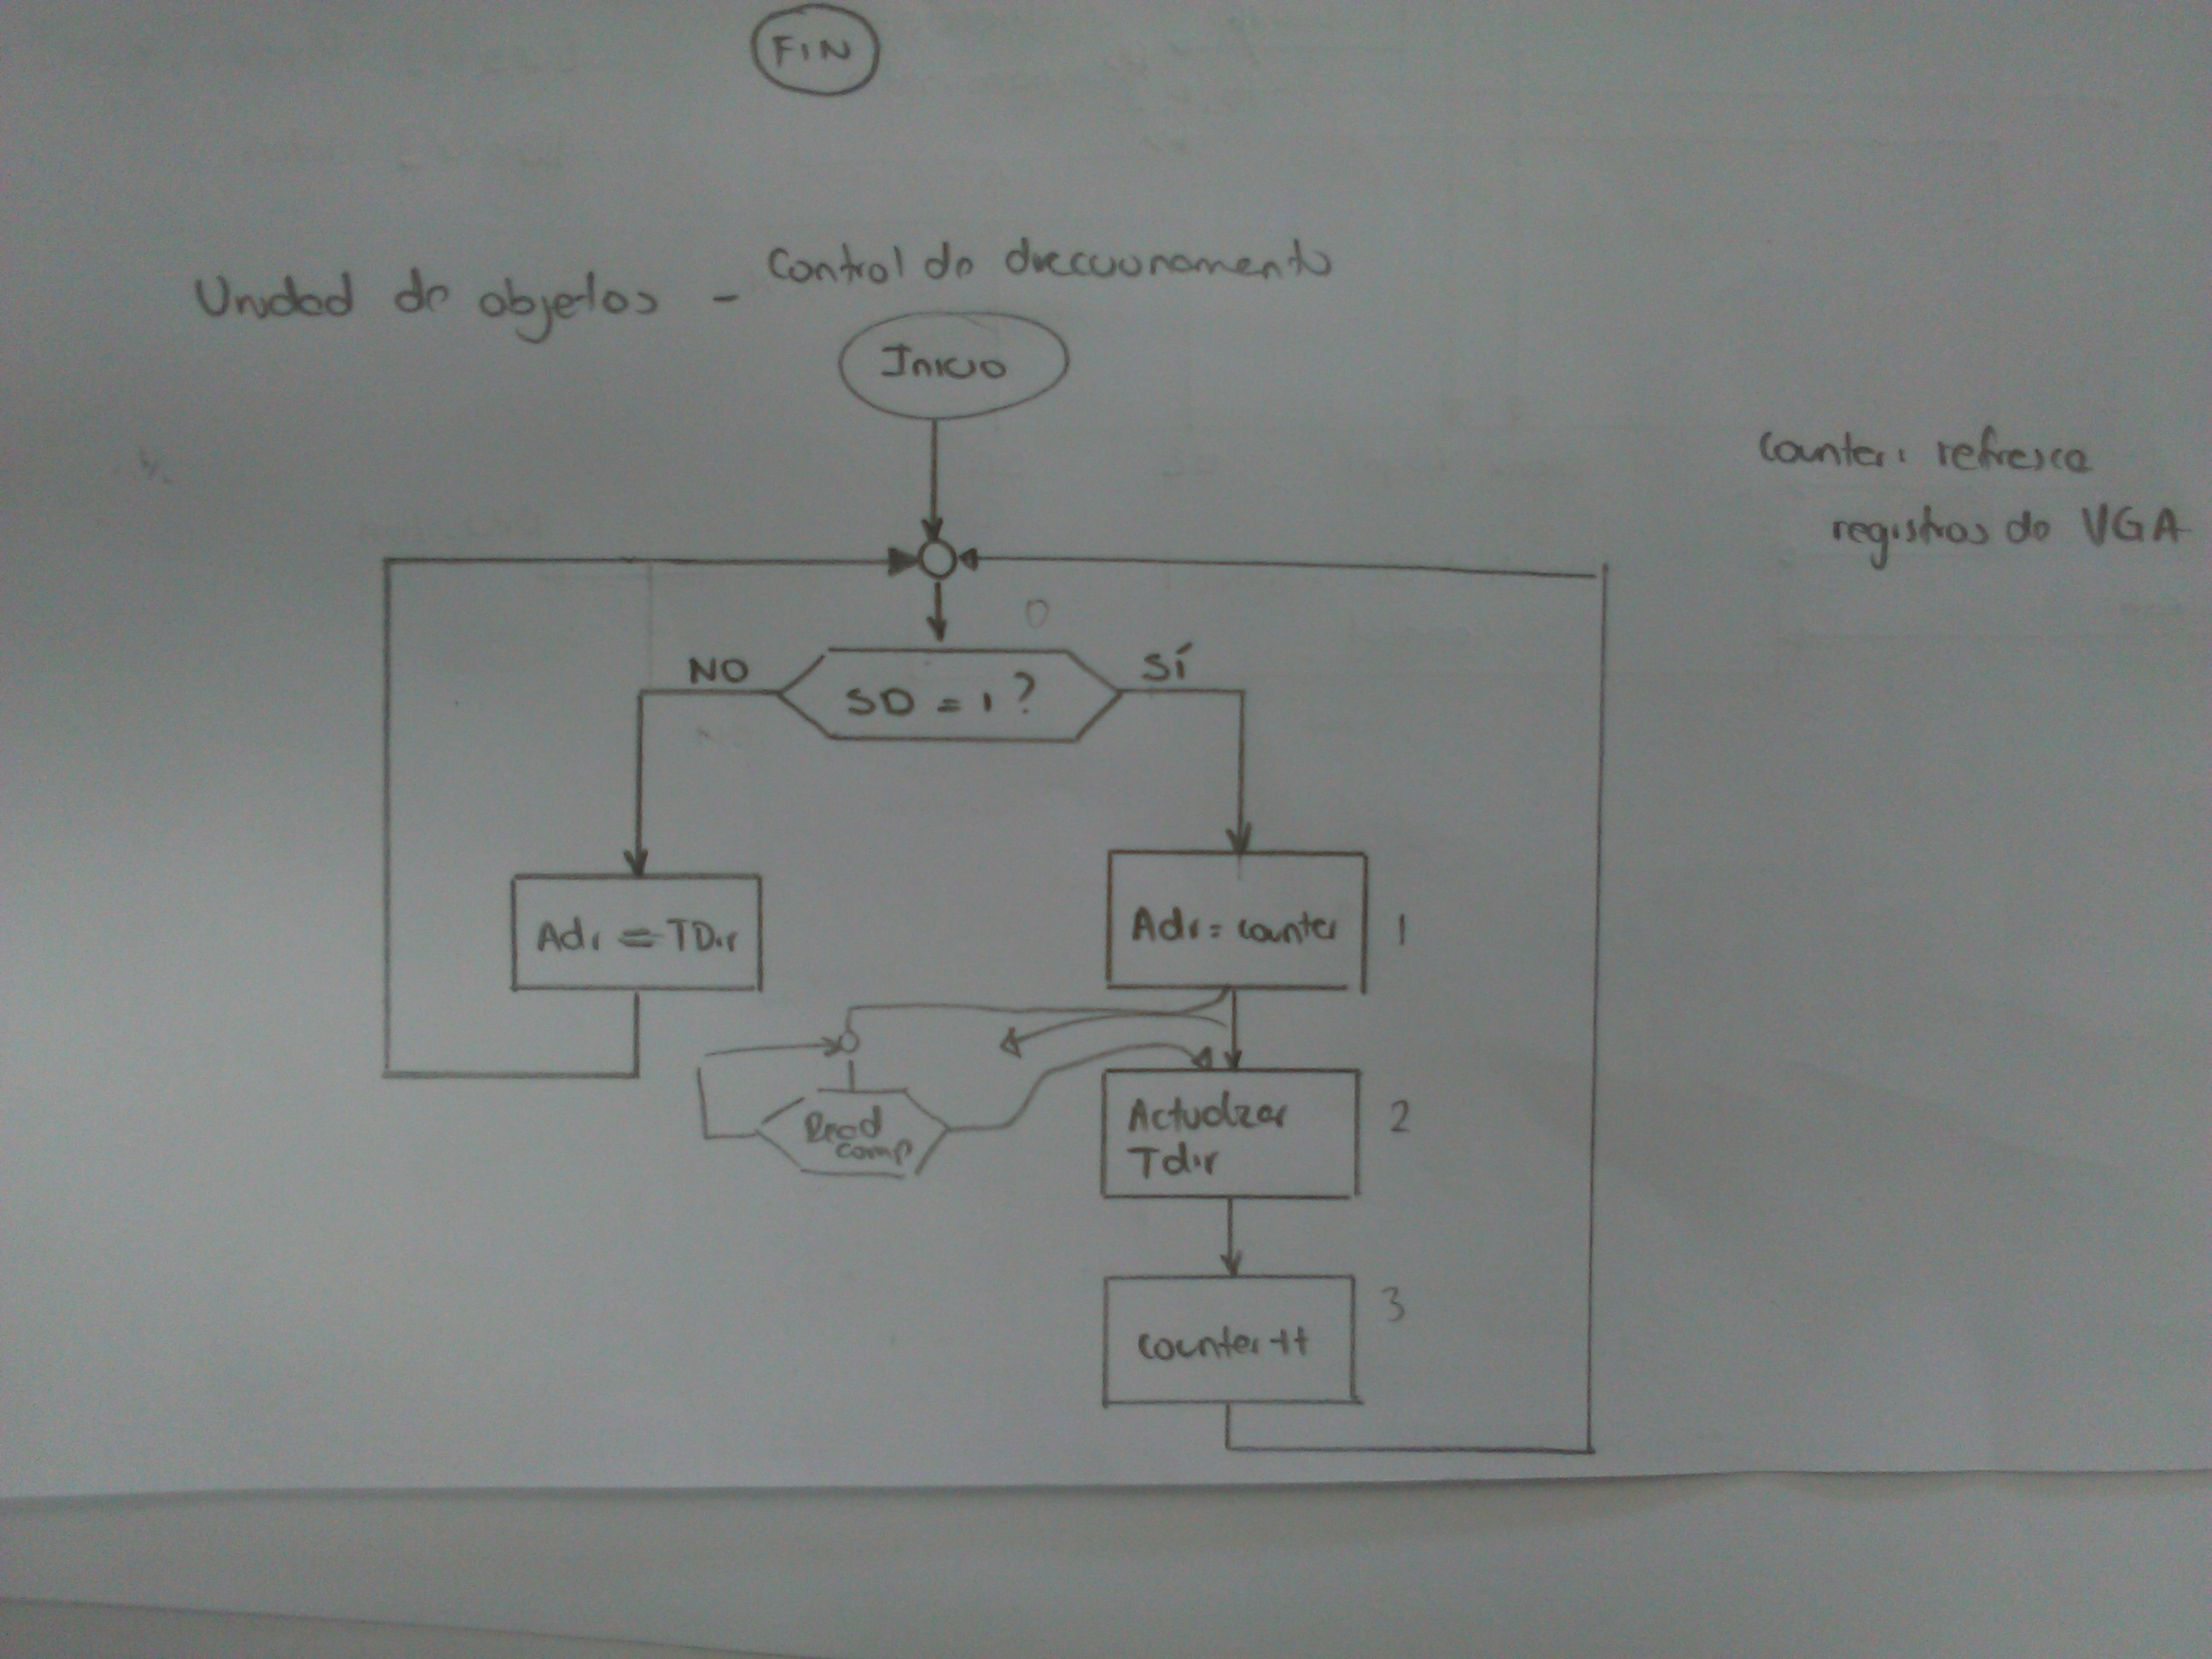 FIN
Unidad de objetos - Control de direccionamiento
Inicio
counter: refresca
registros de VGA
0
NO
SÍ
SD = 1 ?
Adr = TDir
Adr = counter
1
Read
comp
Actualizar
Tdir
2
counter++
3